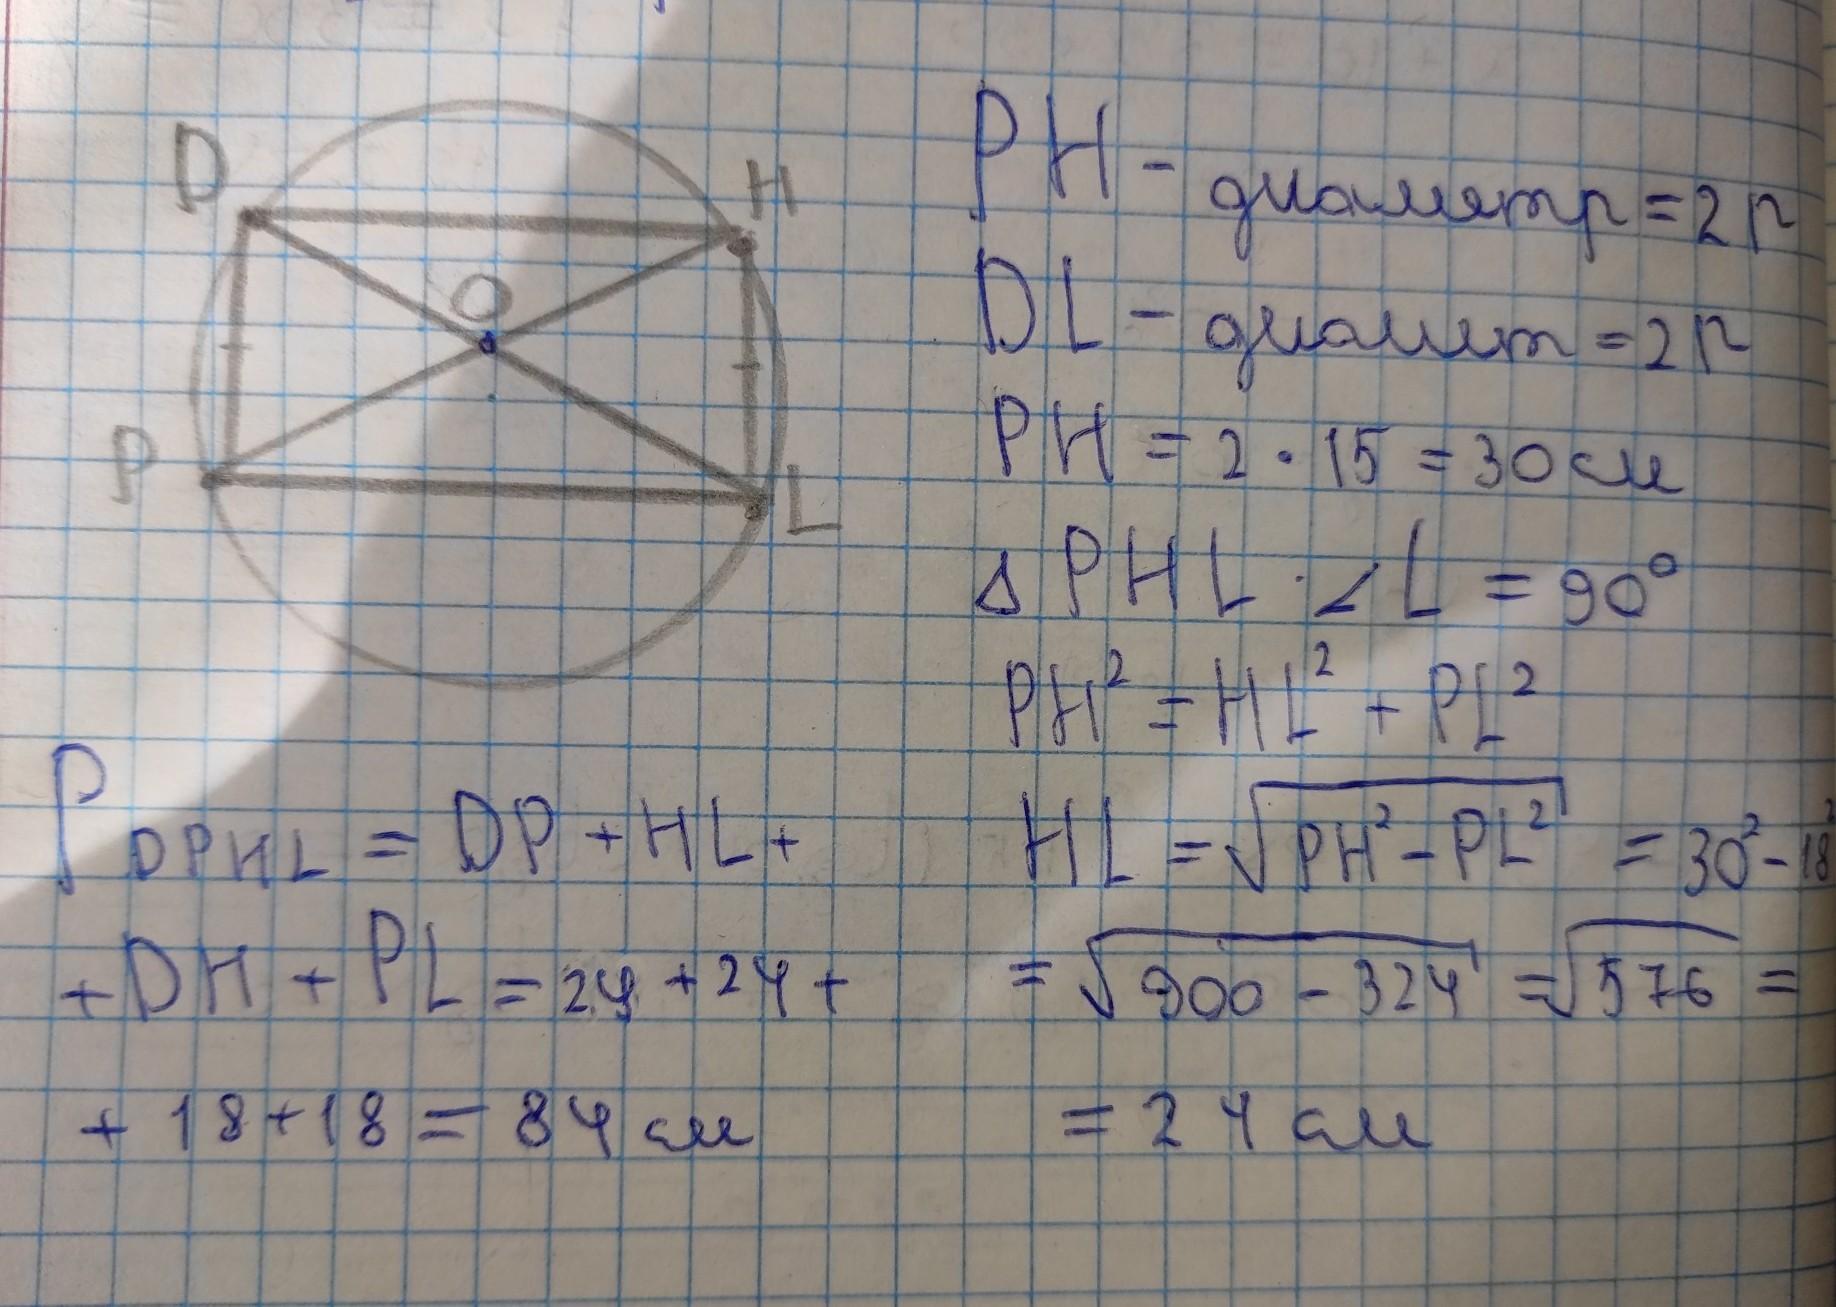 D
H
O
P
L
PH - диаметр = 2r
DL - диамет = 2r
PH = 2 · 15 = 30 см
Δ PHL · ∠L = 90°
PH² = HL² + PL²
HL = √PH² - PL² = 30² - 18²
= √900 - 324 = √576 =
= 24 см
P DPHL = DP + HL +
+ DH + PL = 24 + 24 +
+ 18 + 18 = 84 см